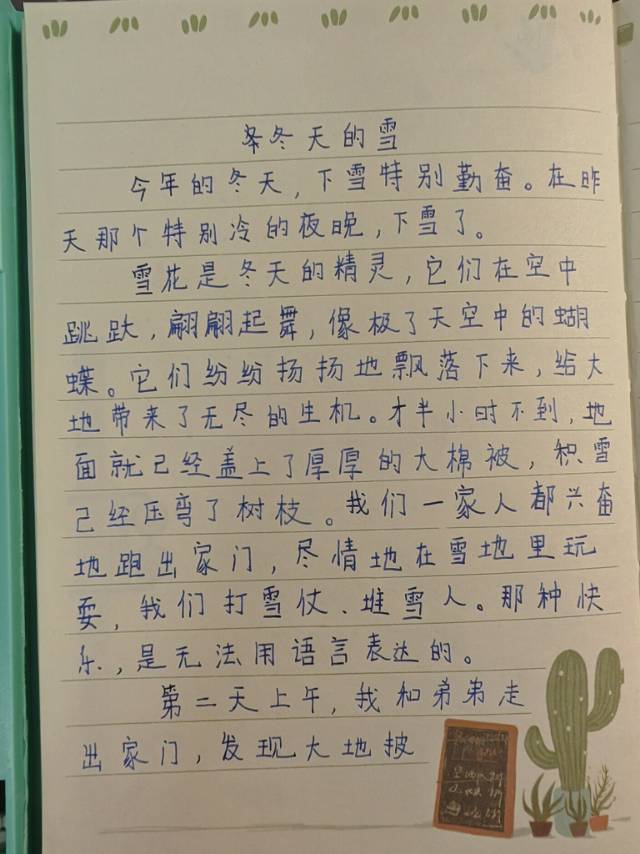 冬天的雪
今年的冬天，下雪特别勤奋。在昨
天那个特别冷的夜晚，下雪了。
雪花是冬天的精灵，它们在空中
跳跃，翩翩起舞，像极了天空中的蝴
蝶。它们纷纷扬扬地飘落下来，给大
地带来了无尽的生机。才半小时不到，地
面就已经盖上了厚厚的大棉被，积雪
已经压弯了树枝。我们一家人都兴奋
地跑出家门，尽情地在雪地里玩
耍，我们打雪仗、堆雪人。那种快
乐，是无法用语言表达的。
第二天上午，我和弟弟走
出家门，发现大地披